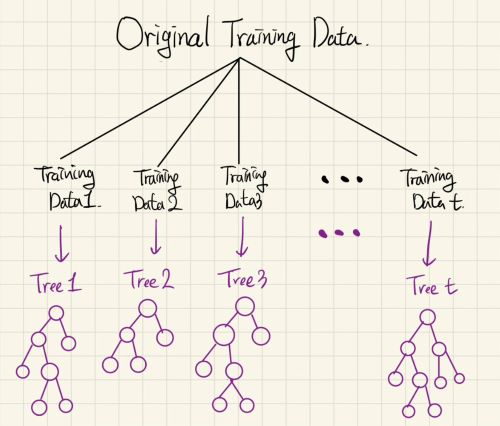 Original Training Data.
Training
Data1.
Training
Data 2
Training
Data3
Training
Data t.
Tree 1
Tree 2
Tree 3
Tree t